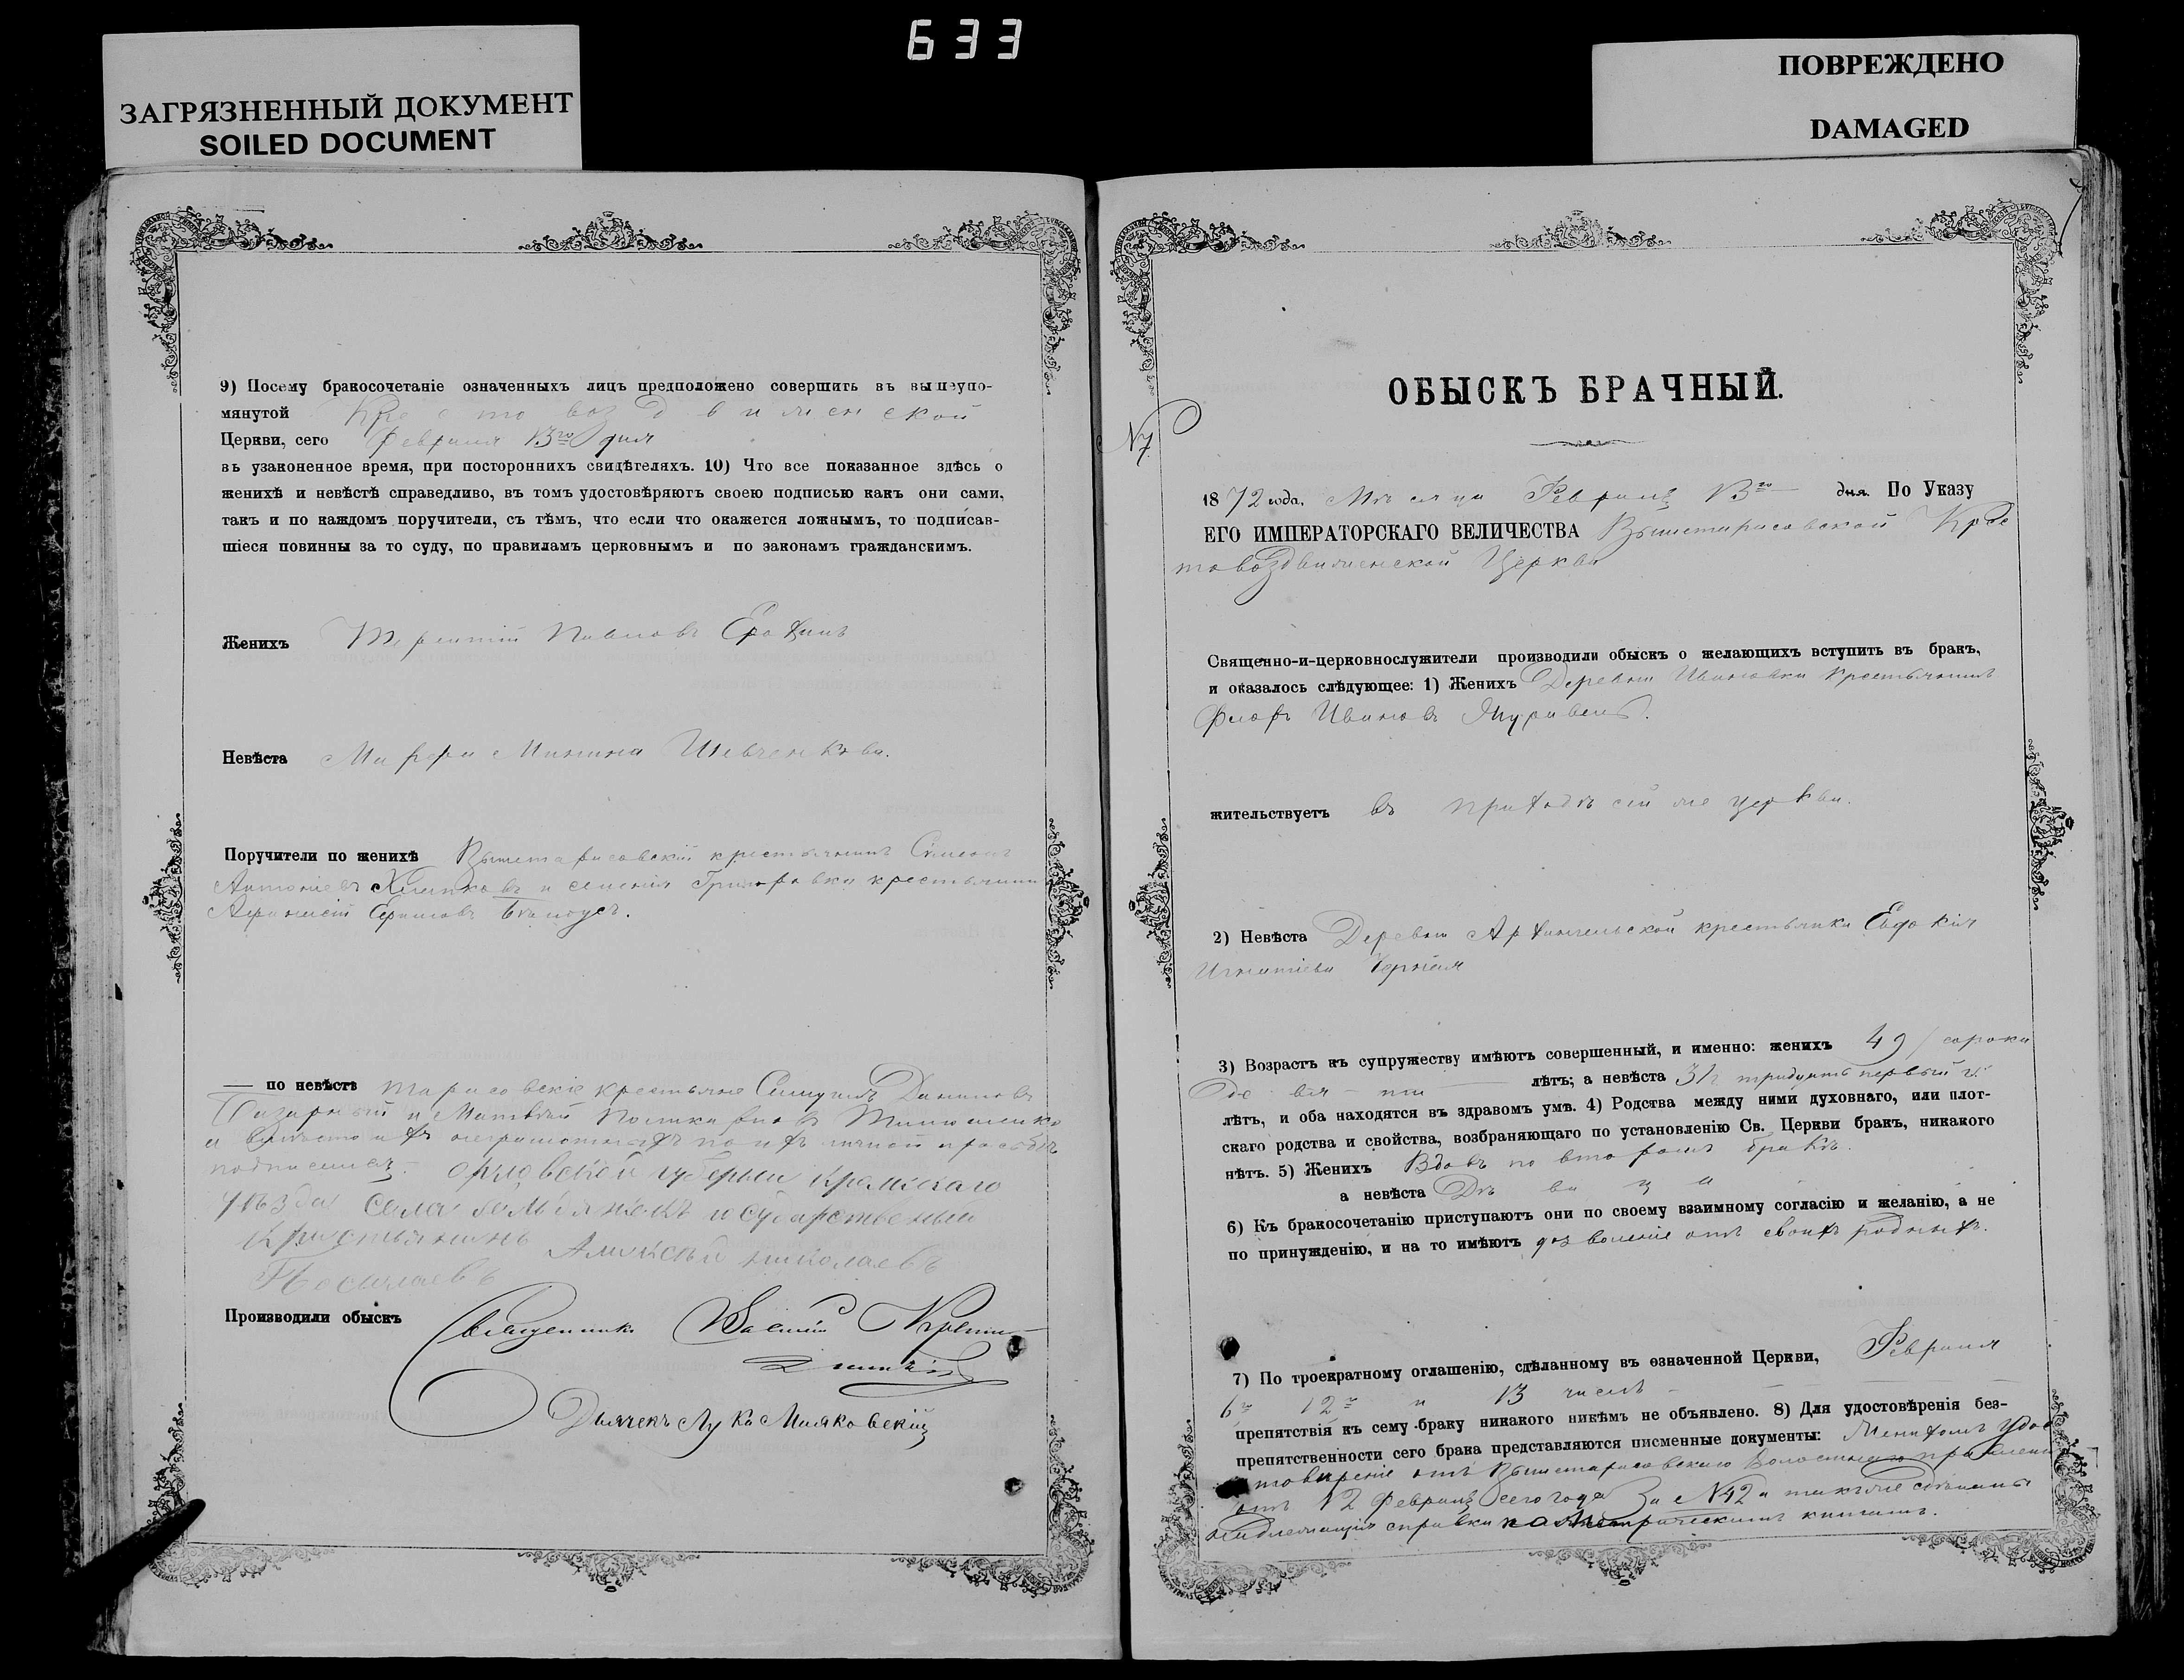 633
ЗАГРЯЗНЕННЫЙ ДОКУМЕНТ
SOILED DOCUMENT
ПОВРЕЖДЕНО
DAMAGED
9) Посему бракосочетаніе означенныхъ лицъ предположено совершить въ вышеупо-
мянутой Крестовоздвиженской
Церкви, сего Февраля 13го дня
въ узаконенное время, при постороннихъ свидѣтеляхъ. 10) Что все показанное здѣсь о
женихѣ и невѣстѣ справедливо, въ томъ удостовѣряютъ своею подписью какъ они сами,
такъ и по каждомъ поручители, съ тѣмъ, что если что окажется ложнымъ, то подписав-
шіеся повинны за то суду, по правиламъ церковнымъ и по законамъ гражданскимъ.
Женихъ Терентій Павловъ Ерохинъ
Невѣста Марфа Минина Шевченкова.
Поручители по женихѣ Вышетарасовскій крестьянинъ Симеонъ
Антоніевъ и селенія крестьянинъ
Афанасій Ефимовъ Бѣлоусъ.
— по невѣстѣ Тарасовскіе крестьяне Даниловъ
и Матвѣй
и вмѣсто ихъ неграмотныхъ по ихъ личной прозьбѣ
подписался: орловской губерніи кромскаго
уѣзда села государственный
кристьянинъ Аликсѣй николаевъ
Производили обыскъ Священникъ Василій
Дьячекъ Лука Маляковскій
ОБЫСКЪ БРАЧНЫЙ.
№ 7
1872 года. Мѣсяца Февраля 13го дня. По Указу
ЕГО ИМПЕРАТОРСКАГО ВЕЛИЧЕСТВА Вышетарасовской Крес
товоздвиженской Церкви
Священно-и-церковнослужители производили обыскъ о желающихъ вступить въ бракъ,
и оказалось слѣдующее: 1) Женихъ Деревни Ивановки крестьянинъ
Флоръ Ивановъ Журавель.
жительствуетъ въ приходѣ сей же церкви.
2) Невѣста Деревни Архангельской крестьянка Евдокія
Игнатіева Черная
3) Возрастъ къ супружеству имѣютъ совершенный, и именно: женихъ 49 / сорокъ
девять лѣтъ; а невѣста 31г тридцать первый г.
лѣтъ, и оба находятся въ здравомъ умѣ. 4) Родства между ними духовнаго, или плот-
скаго родства и свойства, возбраняющаго по установленію Св. Церкви бракъ, никакого
нѣтъ. 5) Женихъ Вдовъ по второмъ бракѣ.
а невѣста Дѣвица
6) Къ бракосочетанію приступаютъ они по своему взаимному согласію и желанію, а не
по принужденію, и на то имѣютъ дозволеніе отъ своихъ родныхъ.
7) По троекратному оглашенію, сдѣланному въ означенной Церкви, Февраля
6го 12го и 13 числъ
препятствія къ сему браку никакого никѣмъ не объявлено. 8) Для удостовѣренія без-
препятственности сего брака представляются письменные документы: Женихомъ удос
товѣреніе отъ Вышетарасовскаго Волостнаго правленія
отъ 12 Февраля сего года За №42 и также сдѣланы
надлежащія справки по Метрическимъ книгамъ.